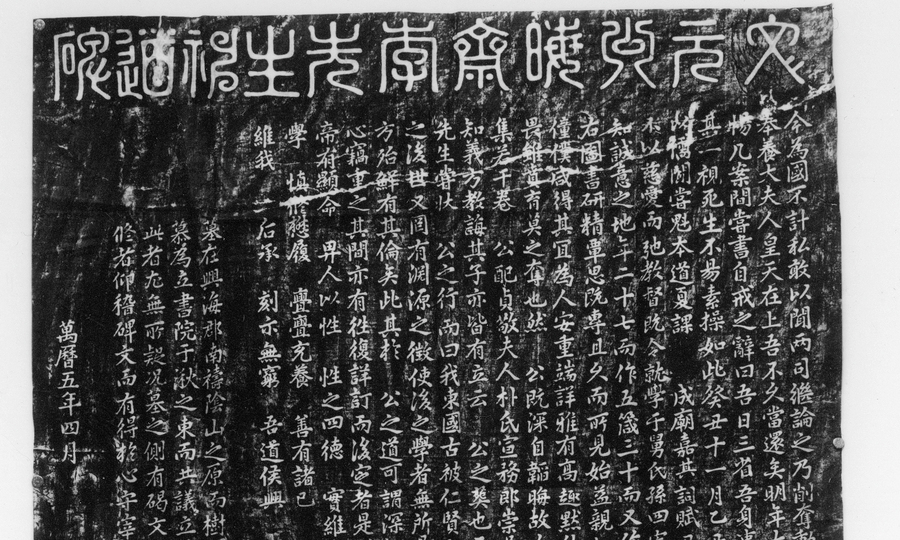 文元公晦齋李先生神道碑
今為國不計私敢以聞兩司繼論之乃削奪勳
奉養大夫人皇天在上吾不久當還矣明年
暢几案間嘗書自戒之辭曰吾日三省吾身
其一視死生不易素操如此癸丑十一月乙
學問嘗魁本道夏課 成廟嘉其詞賦
不以慈愛而弛教督既令就學于舅氏孫四宰
知誠意之地年二十七而作五箴三十而又作
右圖書研精覃思既專且久而所見始益親
僮僕咸得其宜為人安重端詳雅有高趣默
畏雖賁育莫之奪也然 公既深自韜晦故
集若干卷 公配貞敬夫人朴氏宣務郎崇
知義方教誨其子亦皆有立云 公之葬也
先生嘗狀 公之行而曰我東國古被仁賢
之後世又罔有淵源之徵使後之學者無所
方殆鮮有其倫矣此其於 公之道可謂深
心竊重之其間亦有往復詳訂而後定者是
帝有顯命 畀人以性 性之四德 實維
學 慎 履 亹亹充養 善有諸己
維我 后承 刻示無窮 吾道侯興
墓在興海郡南禱陰山之原而樹
慕為立書院于秋之東而共議立
此者尤無所疑況墓之側有碣文
修者仰稽碑文而有得於心守宰
萬曆五年四月